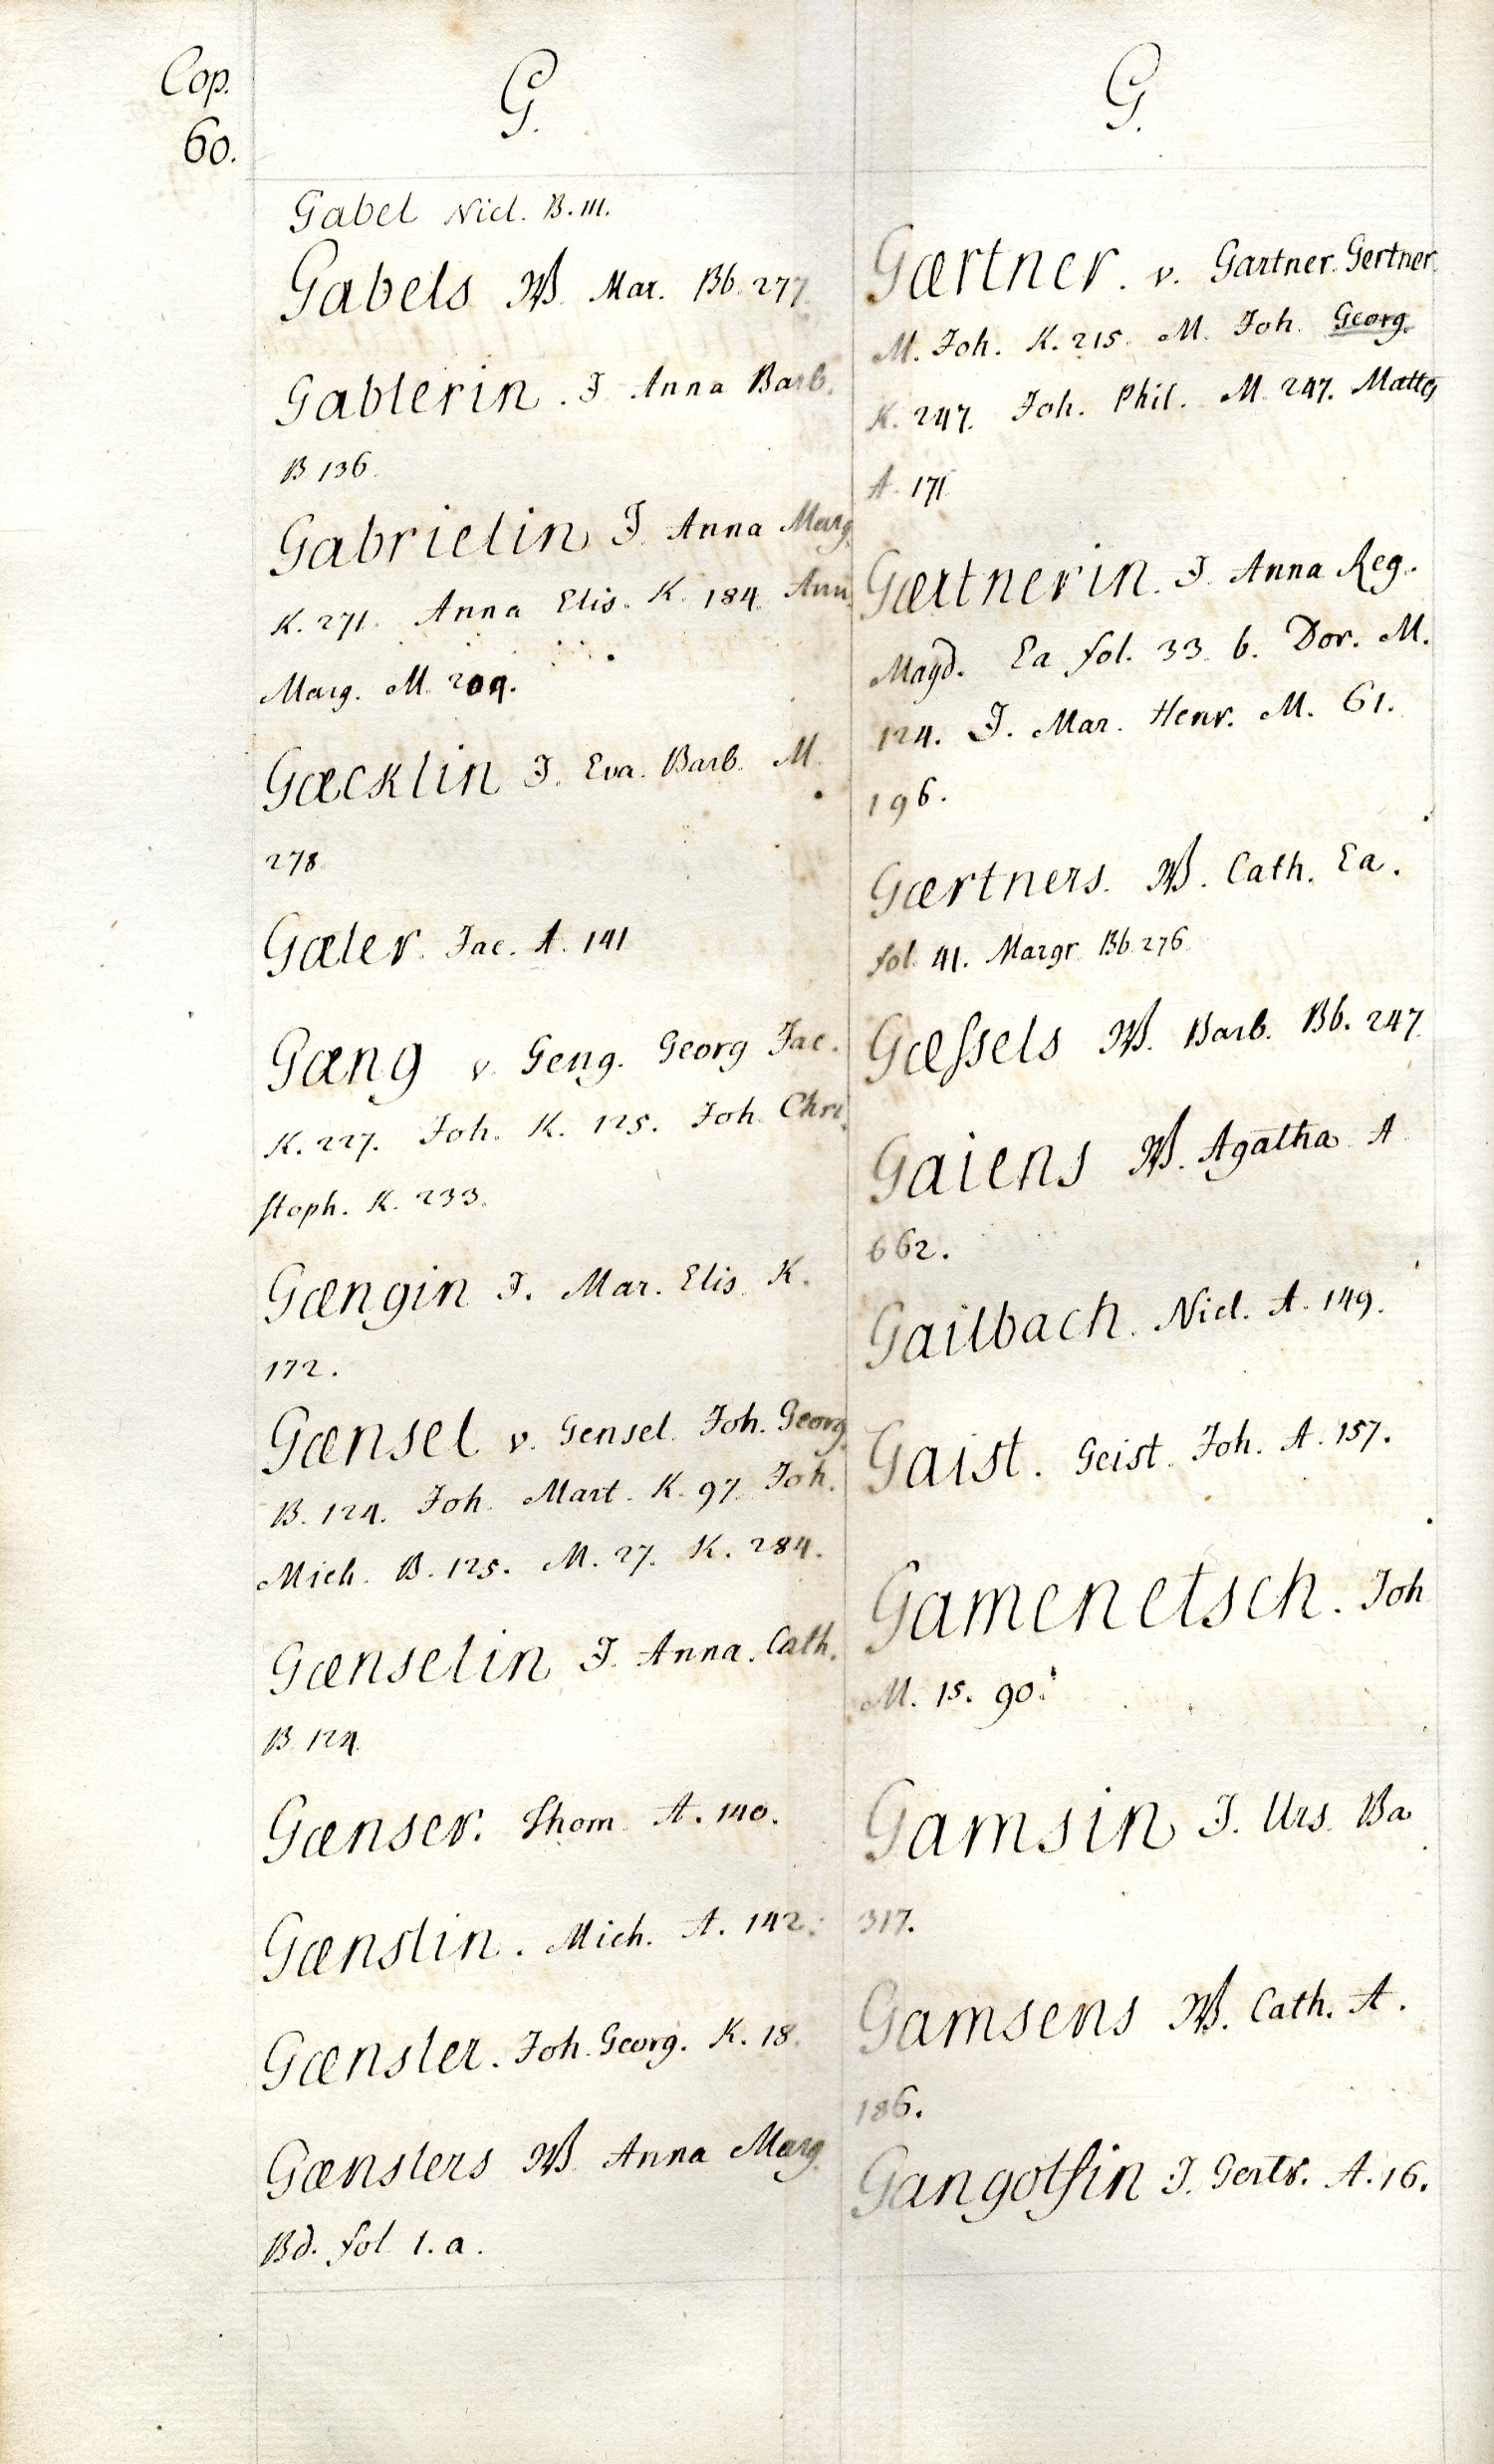 Cop.
60.
G.
Gabel Nicl. B. 111.
Gabels W. Mar. Bb. 277.
Gablerin. J. Anna Barb.
B 136.
Gabrielin J. Anna Marg.
K. 271. Anna Elis. K. 184. Ann.
Marg. M. 204.
Gæcklin J. Eva. Barb. M.
278.
Gæler. Jac. A. 141
Gæng v. Geng. Georg Jac.
K. 227. Joh. K. 125. Joh. Chri
stoph. K. 233.
Gængin J. Mar. Elis. K.
172.
Gænsel v. Gensel. Joh. Georg.
B. 124. Joh. Mart. K. 97. Joh.
Mich. B. 125. M. 27. K. 284.
Gænselin J. Anna. Cath.
B. 124.
Gænser. Thom. A. 140.
Gænslin. Mich. A. 142.
Gænsler. Joh. Georg. K. 18.
Gænslers W. Anna Marg.
Bd. fol 1. a.
G.
Gærtner. v. Gartner. Gertner.
M. Joh. K. 215. M. Joh. Georg.
K. 247. Joh. Phil. M. 247. Matth
A. 171
Gærtnerin. J. Anna Reg.
Magd. Ea fol. 33. b. Dor. M.
124. J. Mar. Henr. M. 61.
196.
Gærtners. W. Cath. Ea.
fol. 41. Margr. Bb. 276.
Gæssels W. Barb. Bb. 247.
Gaiens W. Agatha A.
662.
Gailbach. Nicl. A. 149.
Gaist. Geist. Joh. A. 157.
Gamenetsch. Joh
M. 15. 90.
Gamsin J. Urs. Ba
317.
Gamsens W. Cath. A.
186.
Gangolfin J. Gertr. A. 16.